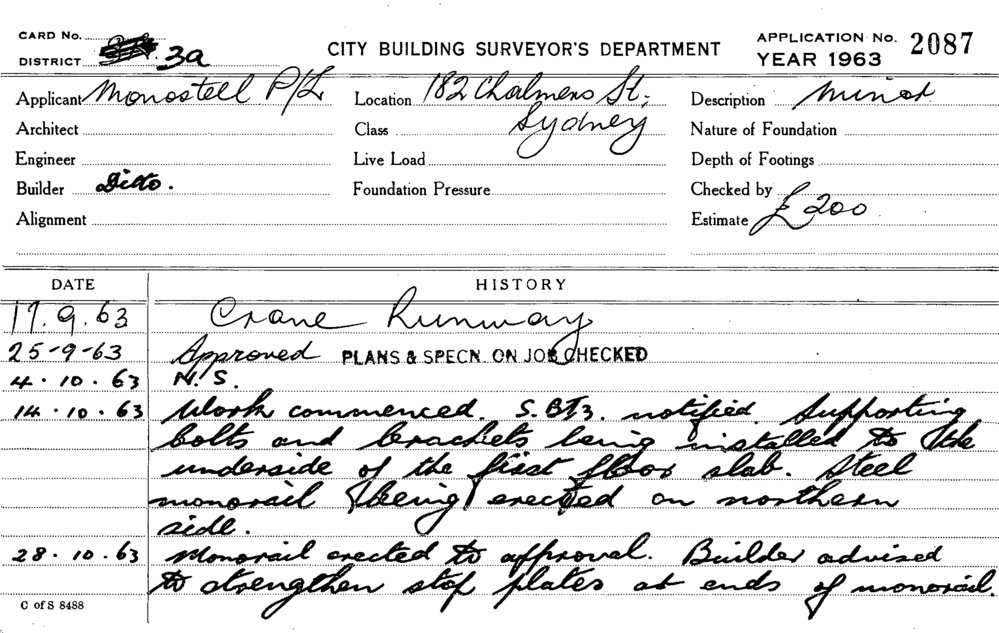 CARD No.
DISTRICT 3a
CITY BUILDING SURVEYOR'S DEPARTMENT
APPLICATION No. 2087
YEAR 1963
Applicant Monosteel P/L
Location 182 Chalmers St;
Sydney
Description Minor
Architect
Class
Nature of Foundation
Engineer
Live Load
Depth of Footings
Builder Ditto.
Foundation Pressure
Checked by
Alignment
Estimate £200
DATE HISTORY
17.9.63 Crane Runway
25-9-63 Approved PLANS & SPECN. ON JOB CHECKED
4.10.63 N.S.
14.10.63 Work commenced. S.BT3. notified. Supporting
bolts and brackets being installed to the
underside of the first floor slab. Steel
monorail being erected on northern
side.
28.10.63 Monorail erected to approval. Builder advised
to strengthen stop plates at ends of monorail.
C of S 8488